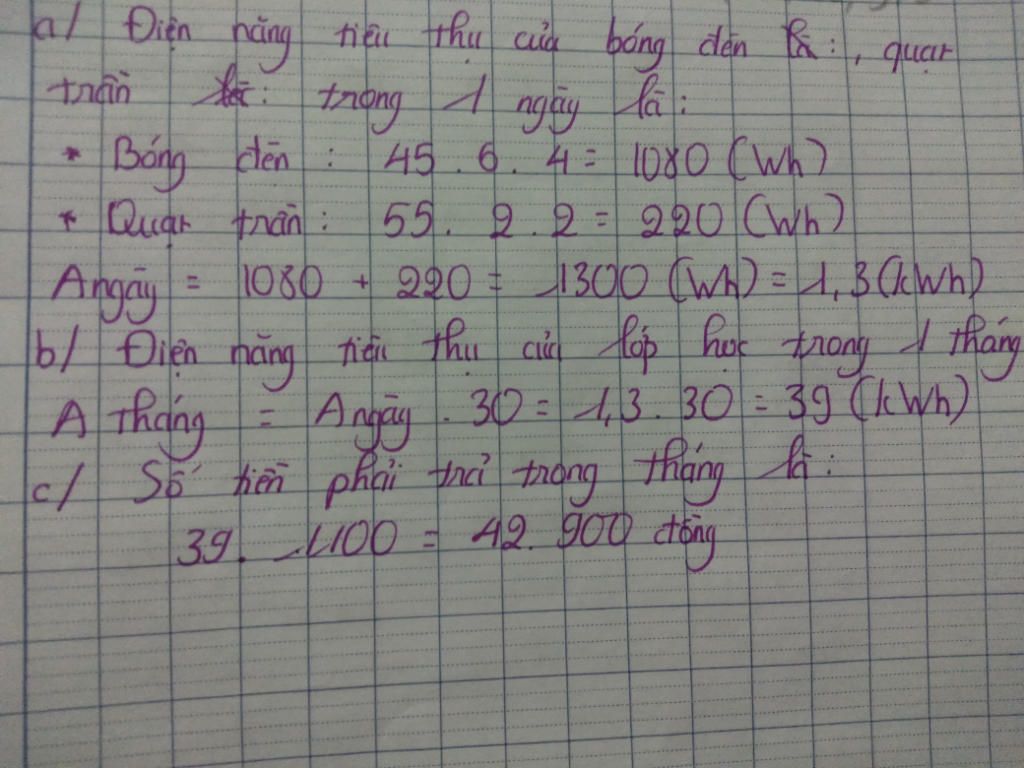 a/ Điện năng tiêu thụ của bóng đèn là:, quạt
trần là: trong 1 ngày là:
* Bóng đèn : 45 . 6 . 4 = 1080 (Wh)
* Quạt trần : 55 . 2 . 2 = 220 (Wh)
A ngày = 1080 + 220 = 1300 (Wh) = 1,3 (kWh)
b/ Điện năng tiêu thụ của lớp học trong 1 tháng
A tháng = A ngày . 30 = 1,3 . 30 = 39 (kWh)
c/ Số tiền phải trả trong tháng là :
39 . 1100 = 42.900 đồng